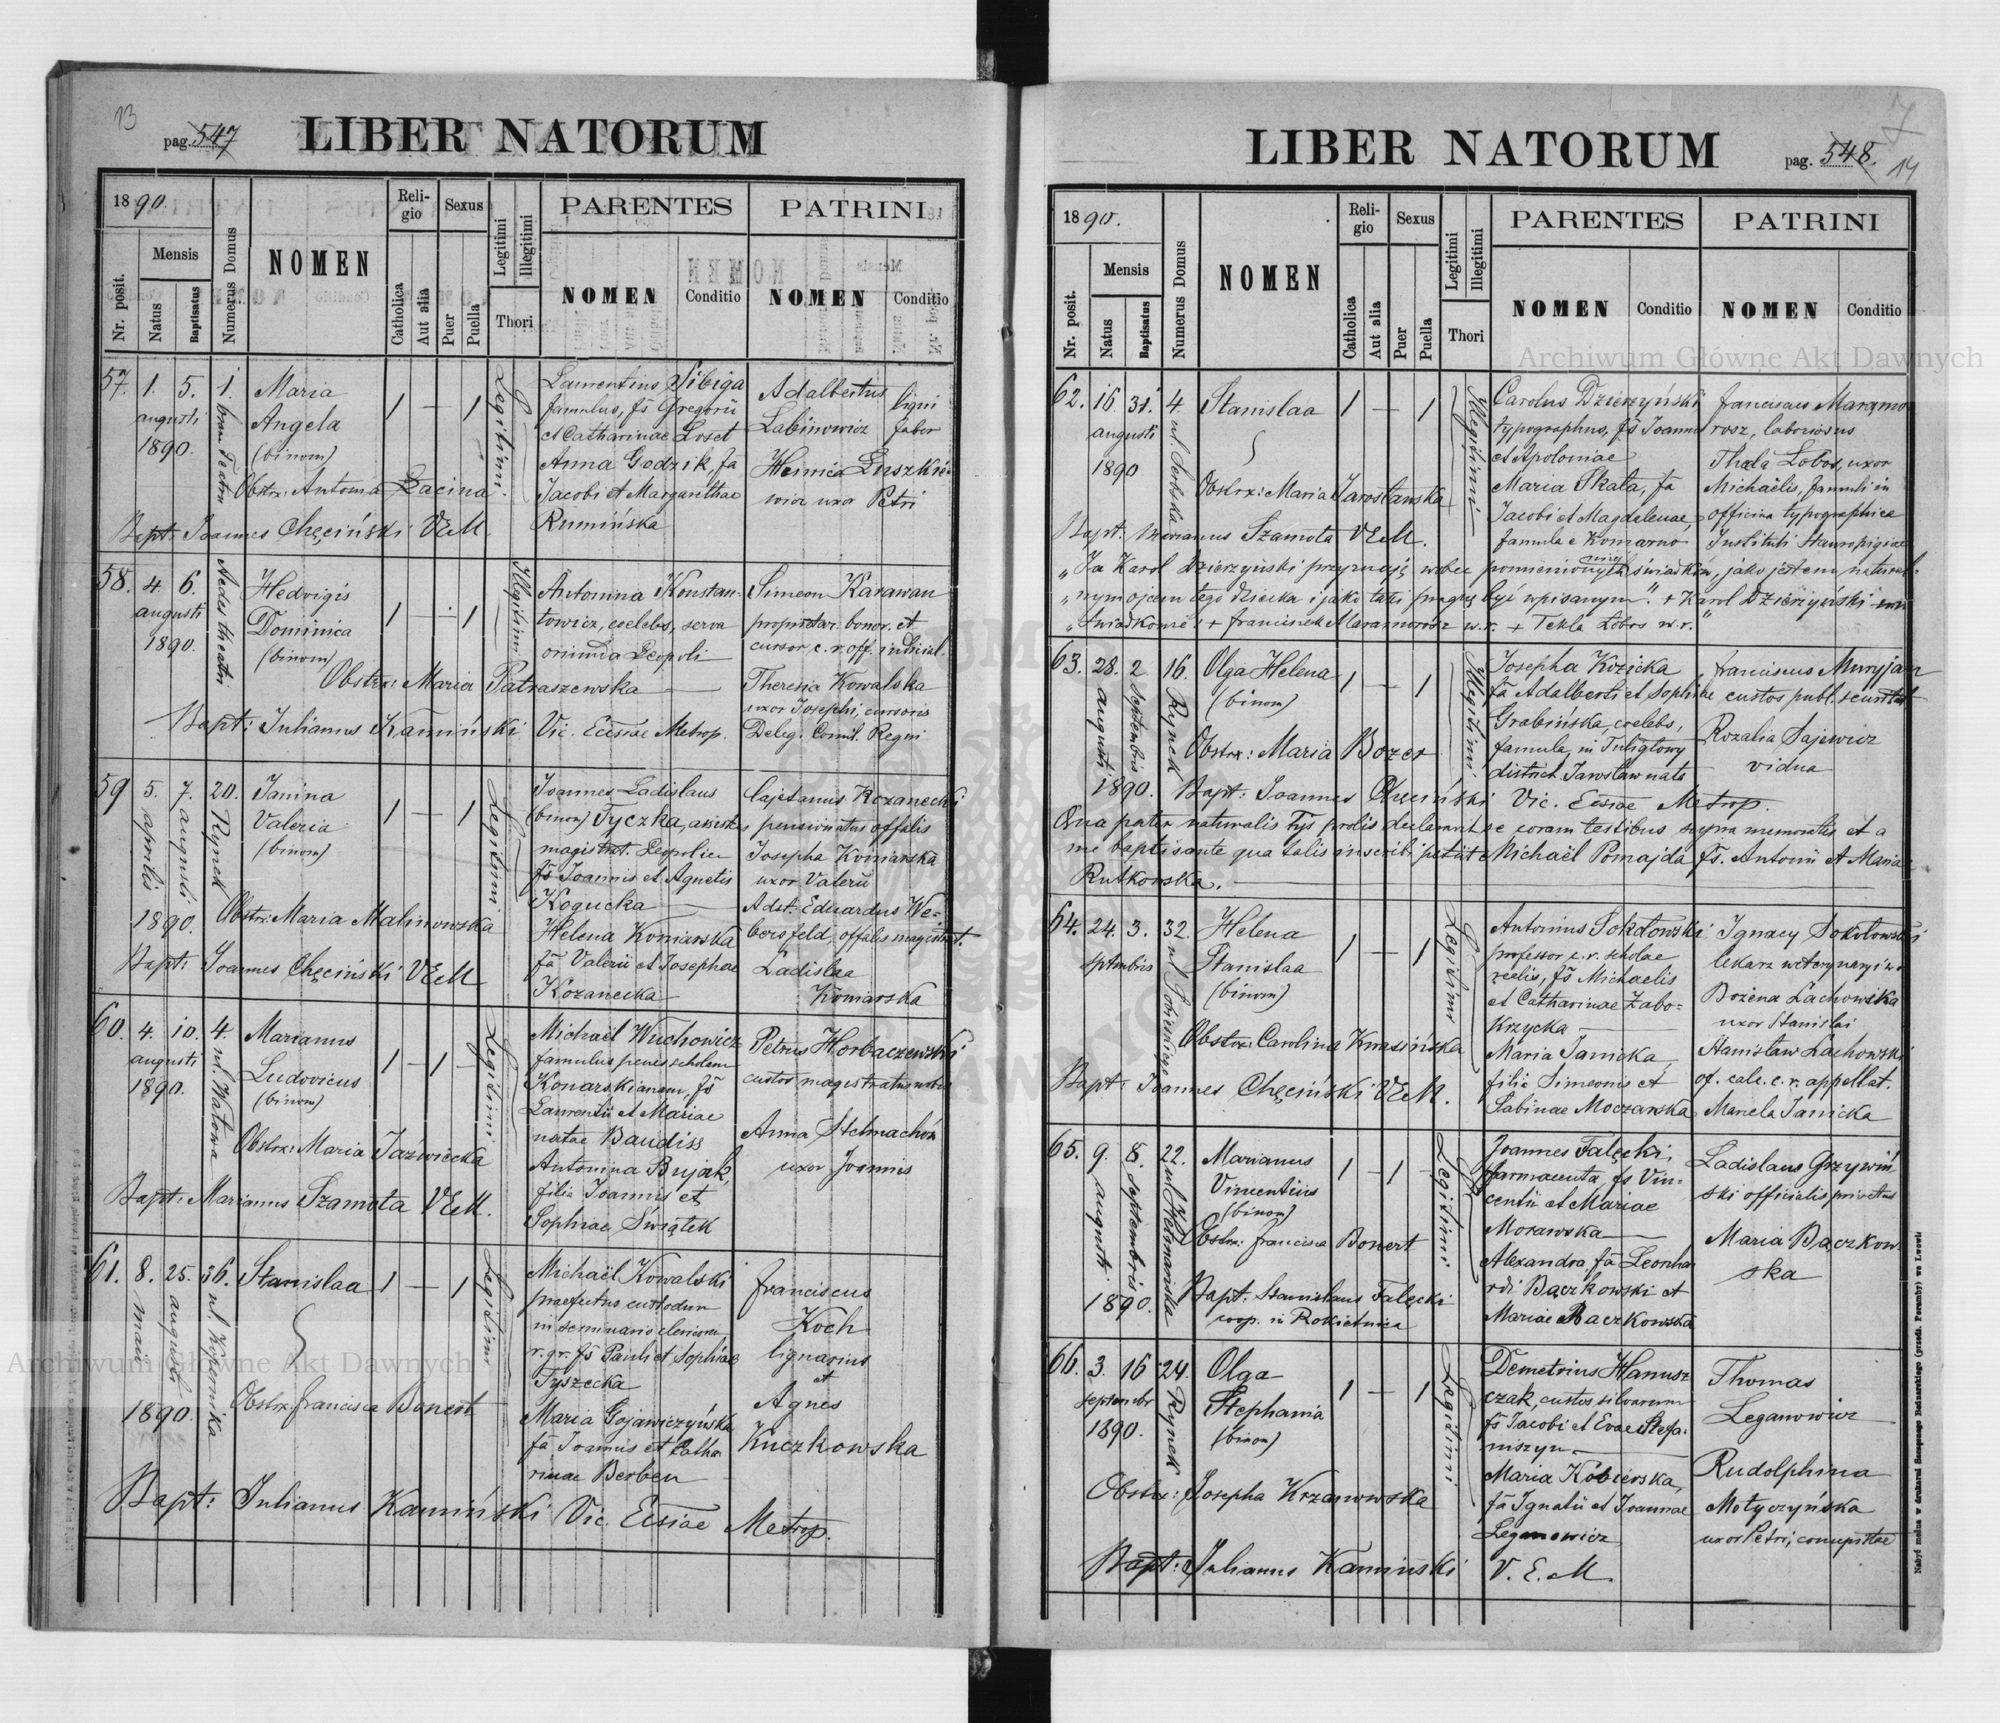 13
pag. 547
LIBER NATORUM
1890.
Nr. posit.
Mensis
Natus
Baptisatus
Numerus Domus
NOMEN
Religio
Catholica
Aut alia
Sexus
Puer
Puella
Legitimi
Illegitimi
Thori
PARENTES
NOMEN
Conditio
PATRINI
NOMEN
Conditio
57. 1. 5. 1.
augusti
1890.
Maria
Angela
(binom)
1 — 1
Legitimi
Laurentius Sibiga
famulus, fs Gregorii
et Catharinae Loset
Anna Godzik, fa
Jacobi et Margarithae
Rumińska
Adalbertus
Labinowicz
ligni
faber
Obstx: Antonia Łacina
Bapt: Joannes Chęciński VEM.
58. 4. 6.
augusti
1890.
Aedes theatri
Hedvigis
Dominica
(binom)
1 — 1
Illegitimi
Antonina Konstan-
towicz, coelebs, serva
oriunda Leopoli
Simeon Karawan
proprietar. bonor. et
cursor c. r. off. indicial.
Theresia Kowalska
uxor Josephi, cursoris
Deleg. Comit. Regni
Obstx: Maria Patraszewska
Bapt: Julianus Kamiński Vic. Ecclsiae Metrop.
59 5. 7. 20.
aprilis
augusti
1890.
Rynek
Janina
Valeria
(binom)
1 — 1
Legitimi
Joannes Ladislaus
(binom) Tyczka, assist.
magistrat. Leopolien
fs Joannis et Agnetis
Kogucka
Helena Komarska
fa Valerii et Josephae
Kozanecka
Cajetanus Kozanecki
pensionatus offalis
Josepha Komarska
uxor Valerii
Adst: Eduardus We-
bersfeld, offalis magistrat.
Ladislaa
Komarska
Obstx: Maria Malinowska
Bapt: Joannes Chęciński VEM
60. 4. 10. 4.
augusti
1890.
ul. Wałowa
Marianus
Ludovicus
(binom)
1 — 1 —
Legitimi
Michaël Wuchowicz
famulus penes scholam
Konarskianam, fs
Laurentii et Mariae
natae Baudiss
Antonina Bujak,
filia Joannis et
Sophiae Świątek
Petrus Horbaczewski
custos magistratus
Anna Stelmachów
uxor Joannis
Obstx: Maria Jaźwiecka
Bapt: Marianus Szamota VEM.
61. 8. 25. 36.
maii
augusti
1890.
ul. Kopernika
Stanislaa
1 — 1
Legitimi
Michaël Kowalski
praefectus custodum
in seminario clericor.
r. gr. fs Pauli et Sophiae
Tyszecka
Maria Gojawiczyńska
fa Joannis et Catha
rinae Berbeu
Franciscus
Koch
lignarius
et
Agnes
Kuczkowska
Obstx: Francisca Bonert
Bapt: Julianus Kamiński Vic. Ecclsiae Metrop.
LIBER NATORUM
pag. 548.
14
1890.
Nr. posit.
Mensis
Natus
Baptisatus
Numerus Domus
NOMEN
Religio
Catholica
Aut alia
Sexus
Puer
Puella
Legitimi
Illegitimi
Thori
PARENTES
NOMEN
Conditio
PATRINI
NOMEN
Conditio
62. 16. 31. 4.
augusti
1890
ul. Serbska
Stanislaa
1 — 1
Illegitimi
Carolus Dzierżyński
typographus, fs Joannis
et Apoloniae
Maria Skała, fa
Jacobi et Magdalenae,
famula e Komarno
Franciscus Maramo
rosz, laboriosus
Thecla Łobos, uxor
Michaëlis, famuli in
officina typographica
Instituti Stauropigiae
Obstx: Maria Jarosławska
Bapt: Marianus Szamota VEM.
„Ja Karol Dzierżyński przyznaję wobec pomienionych świadków, jako jestem natural-
„nym ojcem tego dziecka i jako taki pragnę być wpisanym". + Karol Dzierżyński wr
„Świadkowie: + Franciszek Maramorosz w.r. + Tekla Łobos w.r."
63. 28. 2 16.
augusti
septembris
1890.
Rynek
Olga Helena
(binom)
1 — 1
Illegitimi
Josepha Kozicka
fa Adalberti et Sophiae
Grabińska, coelebs,
famula, in Tuligłowy
district. Jarosław nata
Franciscus Muryjan
custos publ. securitat.
Rozalia Sajewicz
vidua
Obstx: Maria Bozer
Bapt: Joannes Chęciński Vic. Ecclsiae Metrop.
Qua pater naturalis hujus prolis declaravit se coram testibus supra memoratis et a
me baptisante qua talis inscribi petiit Michaël Pomajda fs. Antonii et Mariae
Rutkowska.
64. 24. 3. 32.
sptembris
ul. Sobieskiego
Helena
Stanislaa
(binom)
1 — 1
Legitimi
Antonius Sokołowski
professor c. r. scholae
realis, fs Michaelis
et Catharinae Zabo-
krzycka
Maria Janicka,
filia Simeonis et
Sabinae Moczarska
Ignacy Sokołowski
lekarz weterynaryi
Bożena Lachowska
uxor Stanislai
Stanisław Lachowski
of. calc. c. r. appellat.
Manela Janicka
Obstx: Carolina Krasińska
Bapt: Joannes Chęciński VEM.
65. 9. 8. 22.
augusti
septembris
1890.
ul. Hetmańska
Marianus
Vincentius
(binom)
1 — 1 —
Legitimi
Joannes Falęcki,
farmaceuta, fs Vin-
centii et Mariae
Morawska
Alexandra, fa Leonha
rdi Baczkowski et
Mariae Baczkowska
Ladislaus Grzywiń
ski officialis privatus
Maria Baczkow
ska
Obstx: Francisca Bonert
Bapt: Stanislaus Falęcki
coop. in Rokietnica
66. 3. 16 24.
septembr
1890.
Rynek
Olga
Stephania
(binom)
1 — 1
Legitimi
Demetrius Hanusz
czak, custos silvarum
fs Jacobi et Evae Stefa-
niszyn
Maria Kobierska,
fa Ignatii et Joannae
Leganowicz
Thomas
Leganowicz
Rudolphina
Mołyczyńska
uxor Petri, conupistae
Obstx: Josepha Krzanowska
Bapt: Julianus Kamiński V. E. M.
Archiwum Główne Akt Dawnych
Archiwum Główne Akt Dawnych